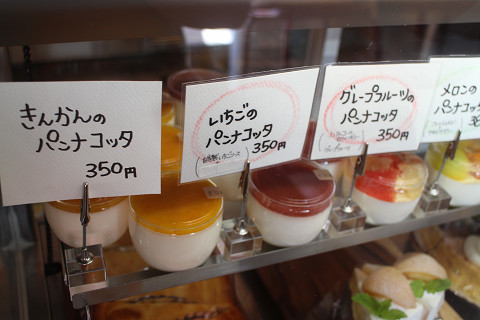 きんかんの
パンナコッタ
350円
いちごの
パンナコッタ
350円
グレープフルーツの
パンナコッタ
350円
メロンの
パンナコッタ